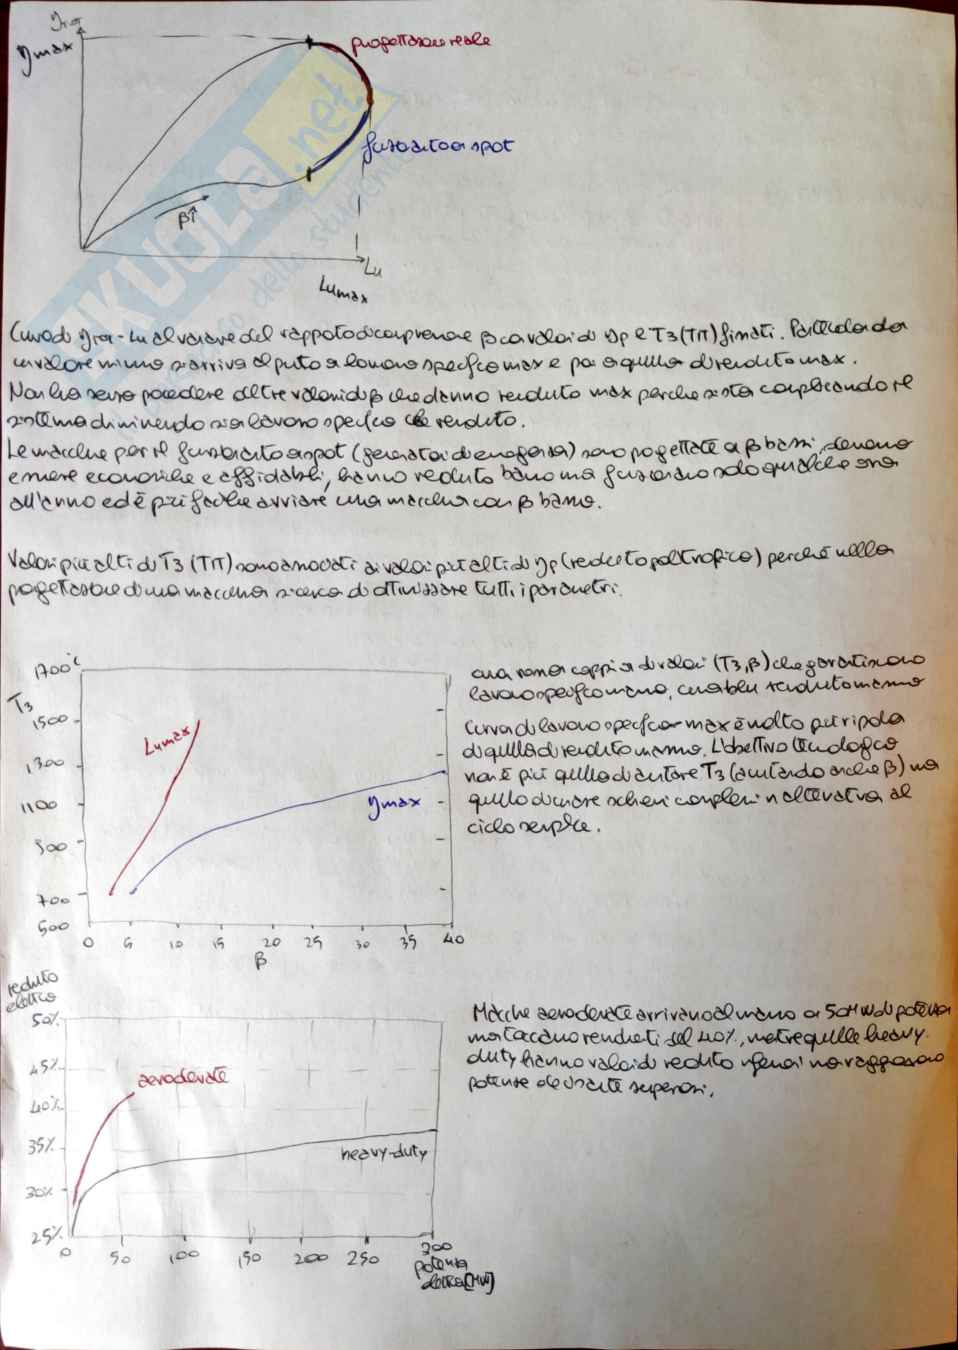 ηmax
progettazione reale
funzionamento a spot
β↑
Lu
Lu max
SKUOLA.net
dello studente
Curva di - Lu al variare del rapporto di compressione β a valori di ηp e T3 (TIT) fissati. Partendo da
un valore minimo si arriva al punto a lavoro specifico max e poi a quello di rendimento max.
Non ha senso procedere oltre valori di β che danno rendimento max perché si sta complicando il
sistema diminuendo sia lavoro specifico che rendimento.
Le macchine per il funzionamento a spot (generatori di emergenza) sono progettate a β bassi, devono
essere economiche e affidabili, hanno rendimento basso ma funzionano solo qualche ora
all'anno ed è più facile avviare una macchina con β basso.
Valori più alti di T3 (TIT) sono associati a valori più alti di ηp (rendimento politropico) perché nella
progettazione di una macchina si cerca di ottimizzare tutti i parametri.
1700°C
T3
1500
1300
1100
900
700
500
Lu max
ηmax
0 5 10 15 20 25 30 35 40
β
coppia di valori (T3,β) che garantiscono
lavoro specifico massimo, rendimento massimo
Curva di lavoro specifico max è molto più ripida
di quella di rendimento massimo. L'obiettivo tecnologico
non è più quello di aumentare T3 (aumentando anche β) ma
quello di creare schemi complessi in alternativa al
ciclo semplice.
rendimento
elettrico
50%
45%
40%
35%
30%
25%
aeroderivate
heavy-duty
0 50 100 150 200 250 300
potenza
elettrica [MW]
Macchine aeroderivate arrivano al massimo a 50MW di potenza
ma toccano rendimenti del 40%, mentre quelle heavy-
duty hanno valori di rendimento inferiori ma raggiungono
potenze elettriche superiori.